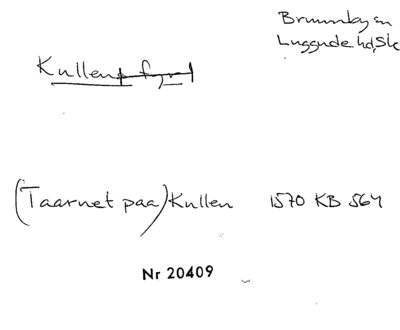 Brunnby sn
Luggude hd, Sk
Kullens fyr
(Taarnet paa) Kullen 1570 KB 564
Nr 20409